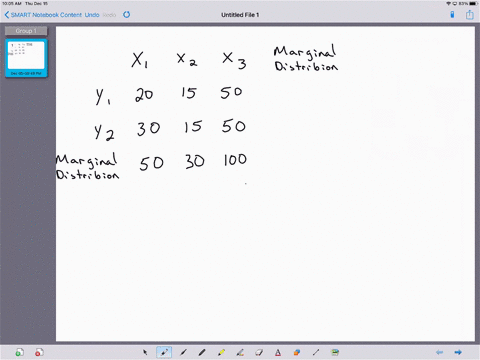 10:05 AM Thu Dec 15
83%
SMART Notebook Content Undo Redo
Untitled File 1
Group 1
X1 X2 X3 Marginal
Distribion
Y1 20 15 50
Y2 30 15 50
Marginal
Distribion 50 30 100